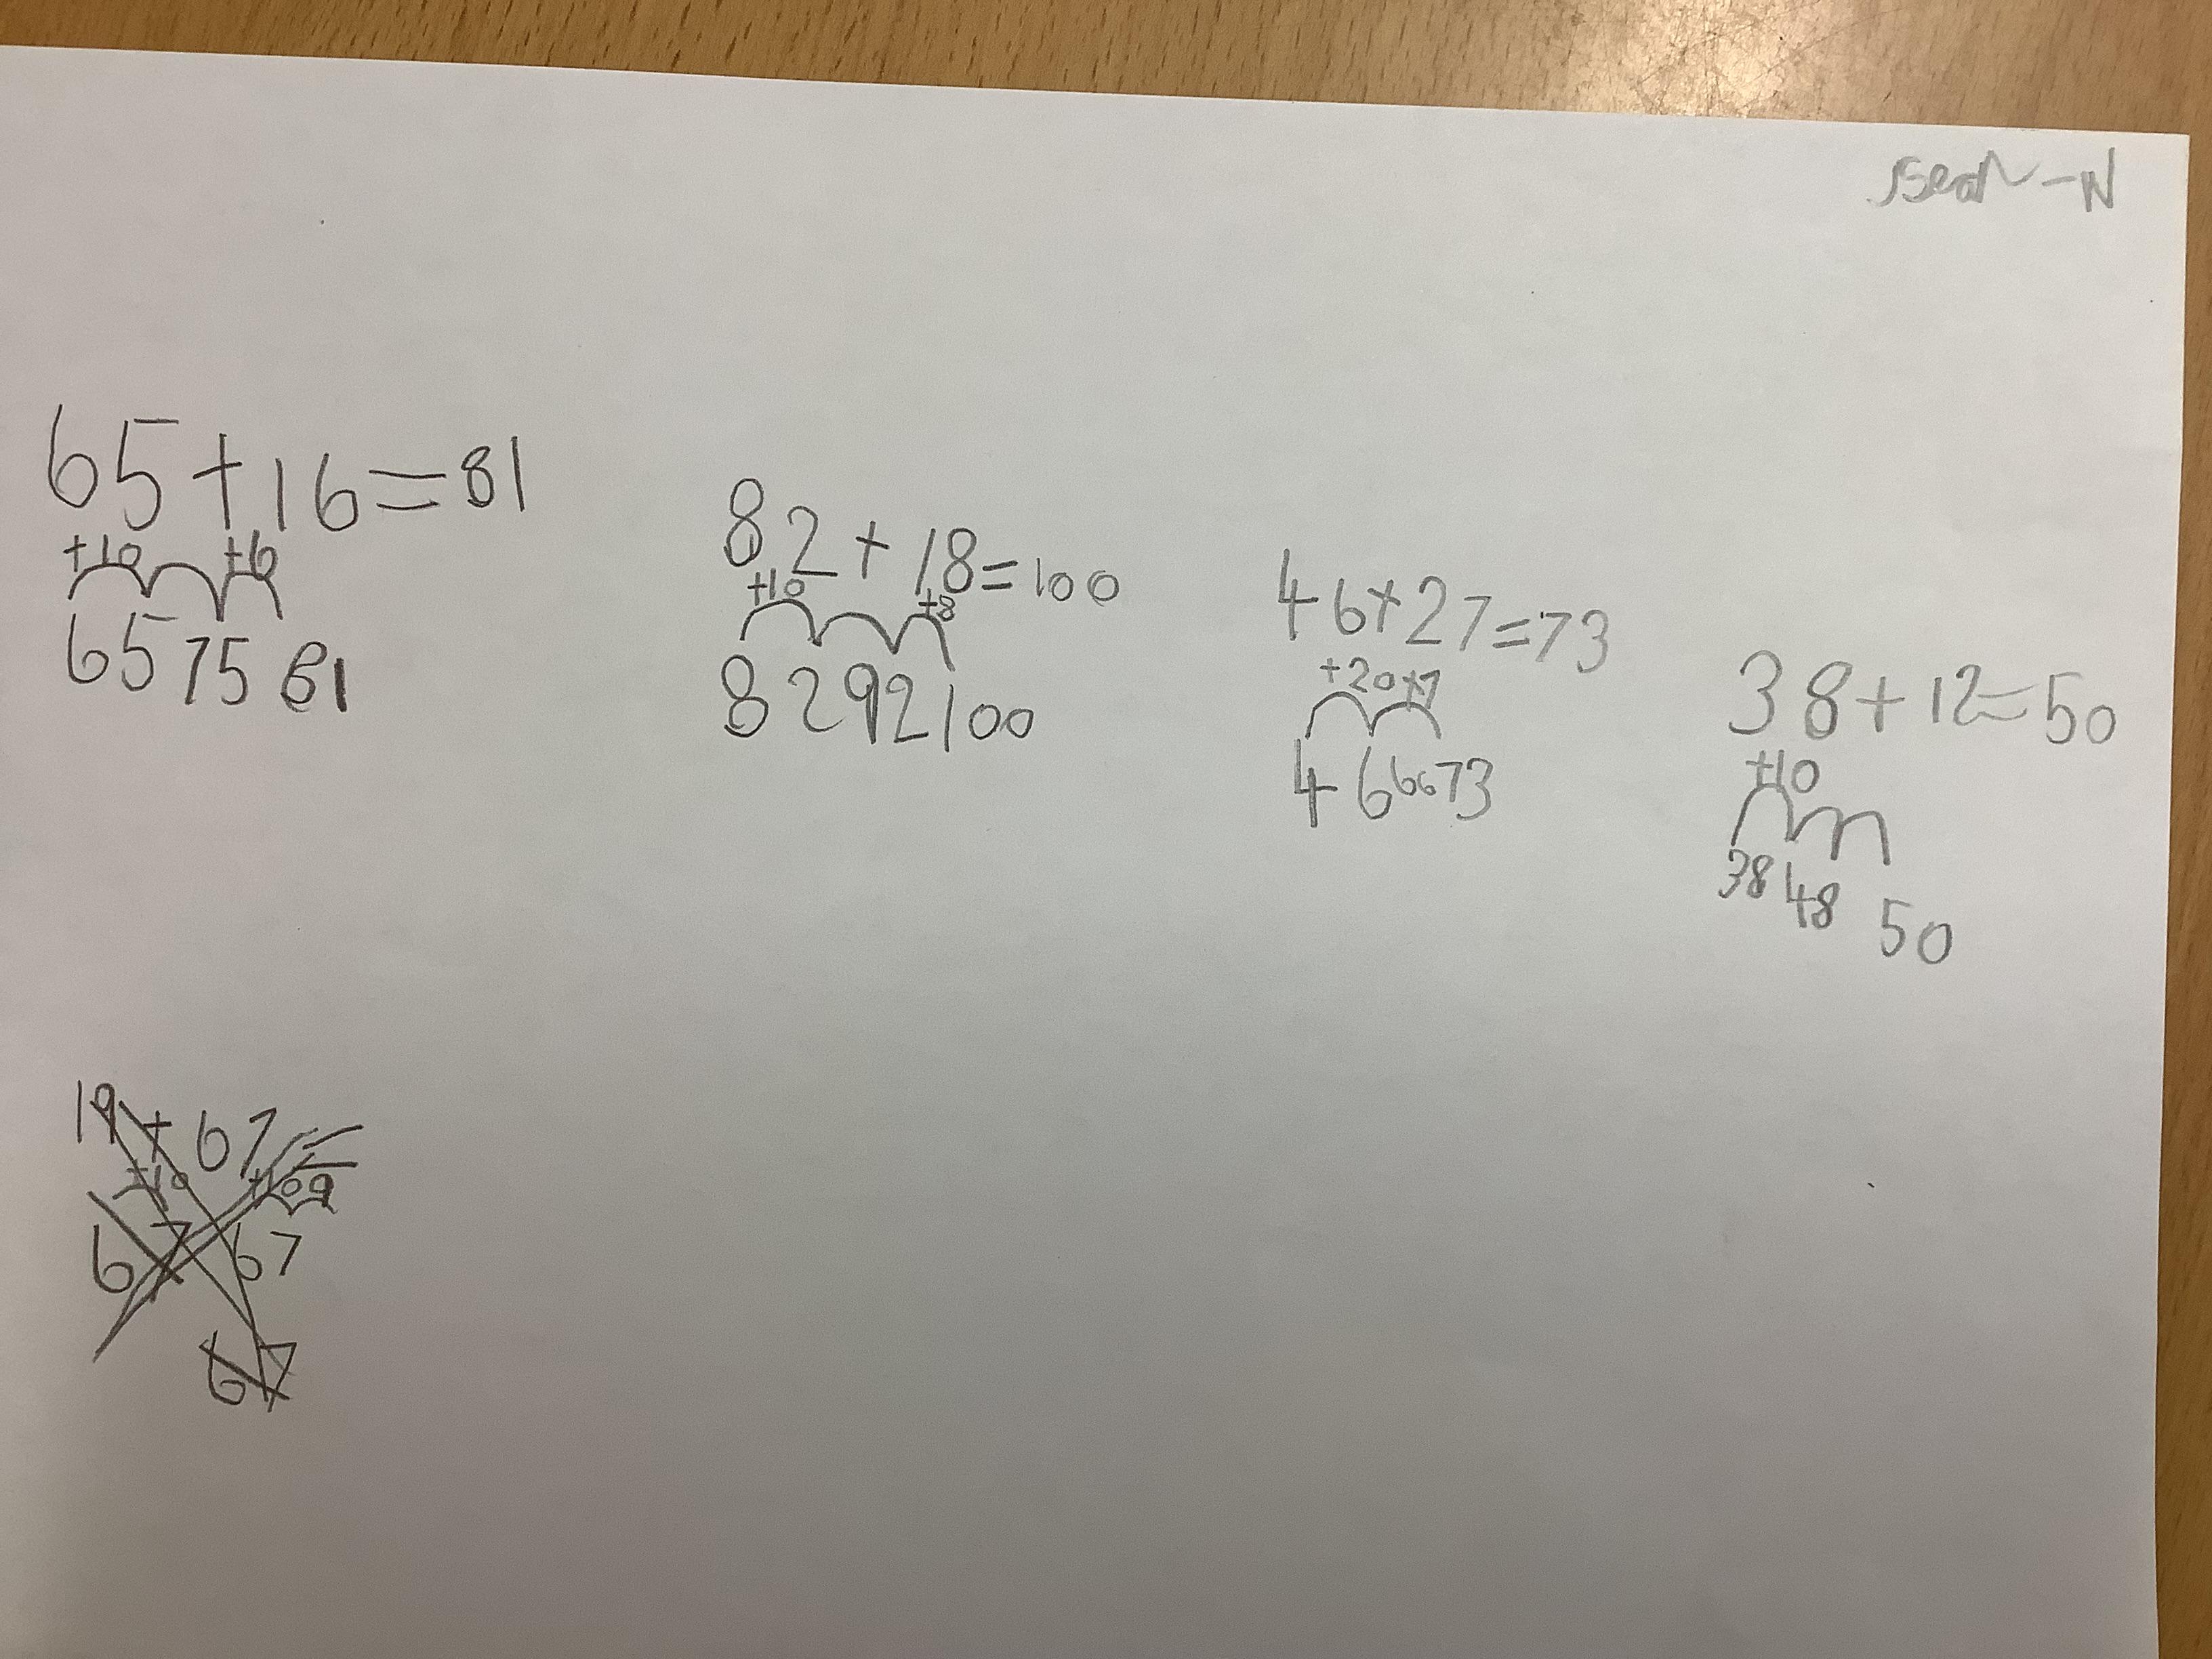 Sean-N
65+16=81
+10 +6
65 75 81
82+18=100
+10 +8
82 92 100
46+27=73
+20 +7
46 66 73
38+12=50
+10
38 48 50
19+67=
+10
67 67
67